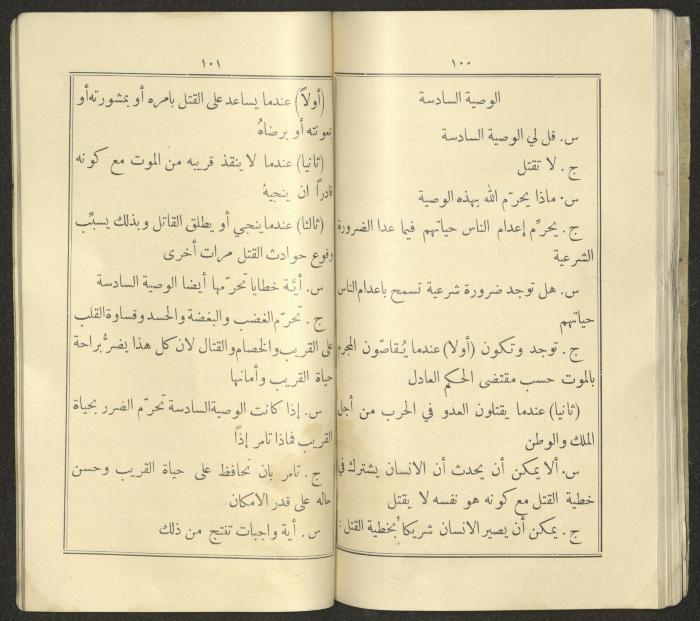 ١٠٠
الوصية السادسة
س. قل لي الوصية السادسة
ج. لا تقتل
س. ماذا يحرّم الله بهذه الوصية
ج. يحرّم إعدام الناس حياتهم فيما عدا الضرورة
الشرعية
س. هل توجد ضرورة شرعية تسمح باعدام الناس
حياتهم
ج. توجد وتكون (أولا) عندما يُقاصّون المجرم
بالموت حسب مقتضى الحكم العادل
(ثانيا) عندما يقتلون العدو في الحرب من أجل
الملك والوطن
س. ألا يمكن أن يحدث أن الانسان يشترك في
خطية القتل مع كونه هو نفسه لا يقتل
ج. يمكن أن يصير الانسان شريكاً بخطية القتل:
١٠١
(أولاً) عندما يساعد على القتل بامره أو بمشورته أو
بمعونته أو برضاهُ
(ثانيا) عندما لا ينقذ قريبه من الموت مع كونه
قادراً ان ينجيهُ
(ثالثا) عندما ينجي أو يطلق القاتل وبذلك يسبِّب
وقوع حوادث القتل مرات أخرى
س. أيَّة خطايا تحرّمها أيضا الوصية السادسة
ج. تحرّم الغضب والبغضة والحسد وقساوة القلب
على القريب والخصام والقتال لان كل هذا يضرُّ براحة
حياة القريب وأمانها
س. إذا كانت الوصية السادسة تحرّم الضرر بحياة
القريب فماذا تامر إذاً
ج. تامر بان نحافظ على حياة القريب وحسن
حاله على قدر الامكان
س. أية واجبات تنتج من ذلك